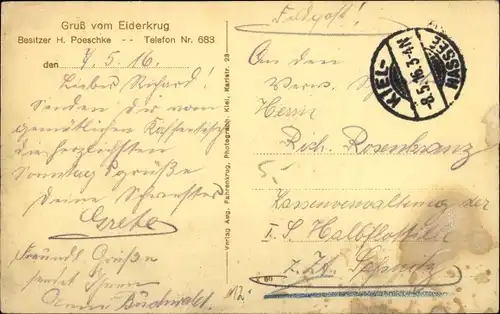 Gruß vom Eiderkrug
Besitzer H. Poeschke -- Telefon Nr. 683
den 7.5.16.
Lieber Richard!
Senden Dir vom
gemütlichen Kaffeetisch
die herzlichsten
Sonntagsgrüße
Deine Schwester
Grete
Freundl. Grüße
sendet Ihnen
Buchwaldt.
Verlag Aug. Fahrenkrug, Photograph, Kiel, Karlstr. 23
Feldpost!
KIEL-HASSEE
-8.5.16.3-4N
An den
Verw. Schr.
Herrn
Rich. Rosenkranz
5.
Kassenverwaltung der
I. S. Halbflottille
z. Zt.